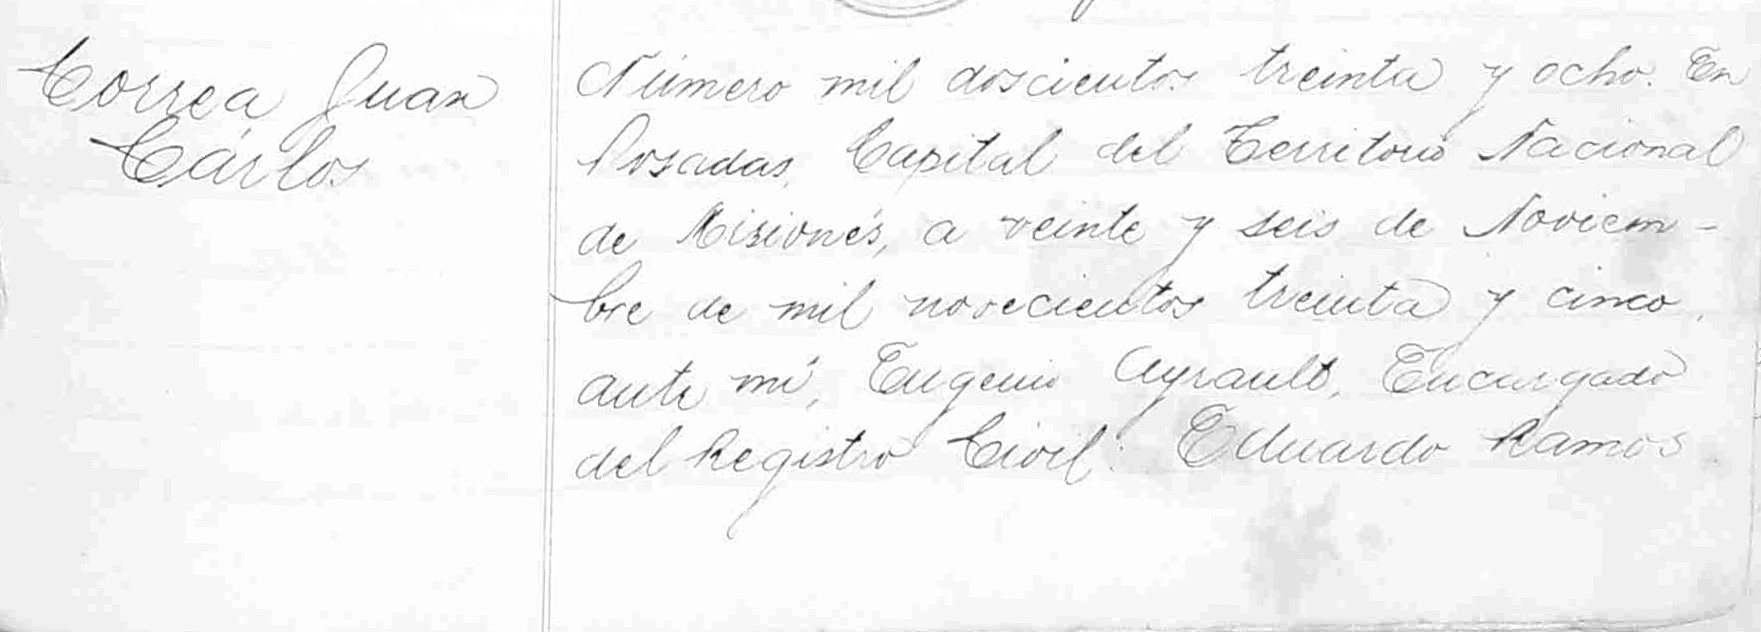 Correa Juan
Cárlos
Número mil doscientos treinta y ocho. En
Posadas, Capital del Territorio Nacional
de Misiones, a veinte y seis de Noviem-
bre de mil novecientos treinta y cinco,
ante mí, Eugenio Ayrault, Encargado
del Registro Civil: Eduardo Ramos